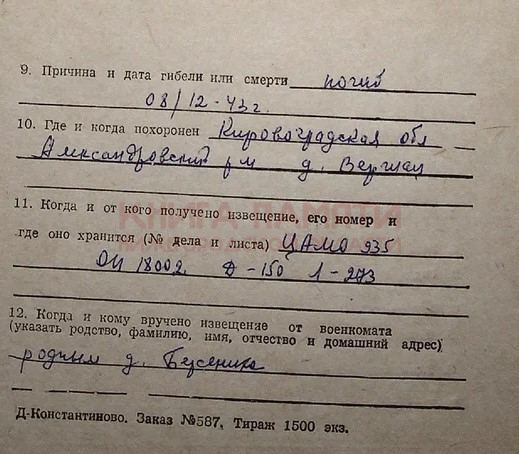 9. Причина и дата гибели или смерти погиб
08/12-43г.
10. Где и когда похоронен Кировоградская обл
Александровский р-н д. Вершац
КНИГА ПАМЯТИ
11. Когда и от кого получено извещение, его номер и
где оно хранится (№ дела и листа) ЦАМО 935
ОП 18002 Д-150 Л-273
12. Когда и кому вручено извещение от военкомата
(указать родство, фамилию, имя, отчество и домашний адрес)
родным д.
Д-Константиново. Заказ №587, Тираж 1500 экз.